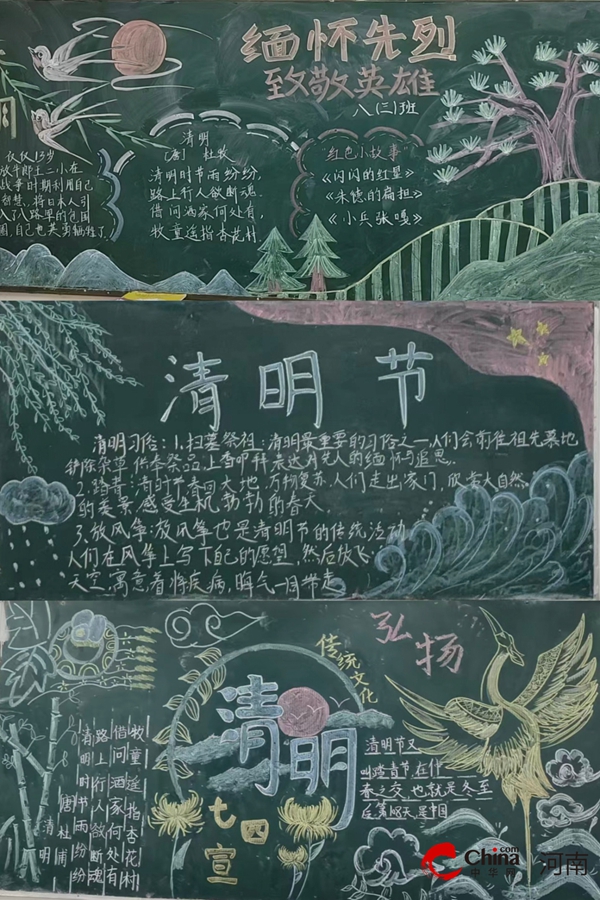 明
缅怀先烈
致敬英雄
八(三)班
仅仅13岁
放牛郎王二小在
战争时期利用自己
智慧,将日本人引
入了八路军的包围
圈,自己也英勇牺牲了
清明
(唐) 杜牧
清明时节雨纷纷,
路上行人欲断魂,
借问酒家何处有,
牧童遥指杏花村
红色小故事
《闪闪的红星》
《朱德的扁担》
《小兵张嘎》
清明节
清明习俗:1.扫墓祭祖:清明最重要的习俗之一,人们会前往祖先墓地
锄除杂草,供奉祭品,上香叩拜,表达对先人的缅怀与追思.
2.踏青:清明时节春回大地,万物复苏,人们走出家门,欣赏大自然
的美景,感受生机勃勃的春天.
3.放风筝:放风筝也是清明节的传统活动
人们在风筝上写下自己的愿望,然后放飞
天空,寓意着将疾病,晦气一同带走
弘扬
传统文化
清明
七四宣
牧童遥指杏花村
借问酒家何处有
路上行人欲断魂
清明时节雨纷纷
唐 杜甫
清明
清明节又
叫踏青节,在仲
春之交,也就是冬至
后第108天,是中国
China.com
中华网
河南